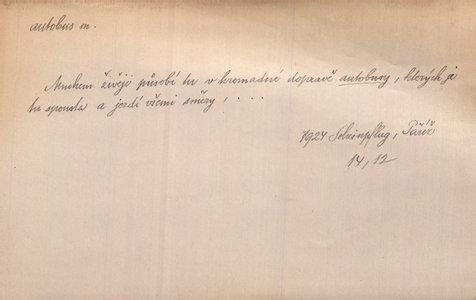 autobus m.
Mnohem živěji působí tu v hromadné dopravě autobusy, kterých je
tu spousta a jezdí všemi směry, . . .
1927 Scheinpflug, Paříž
14, 12